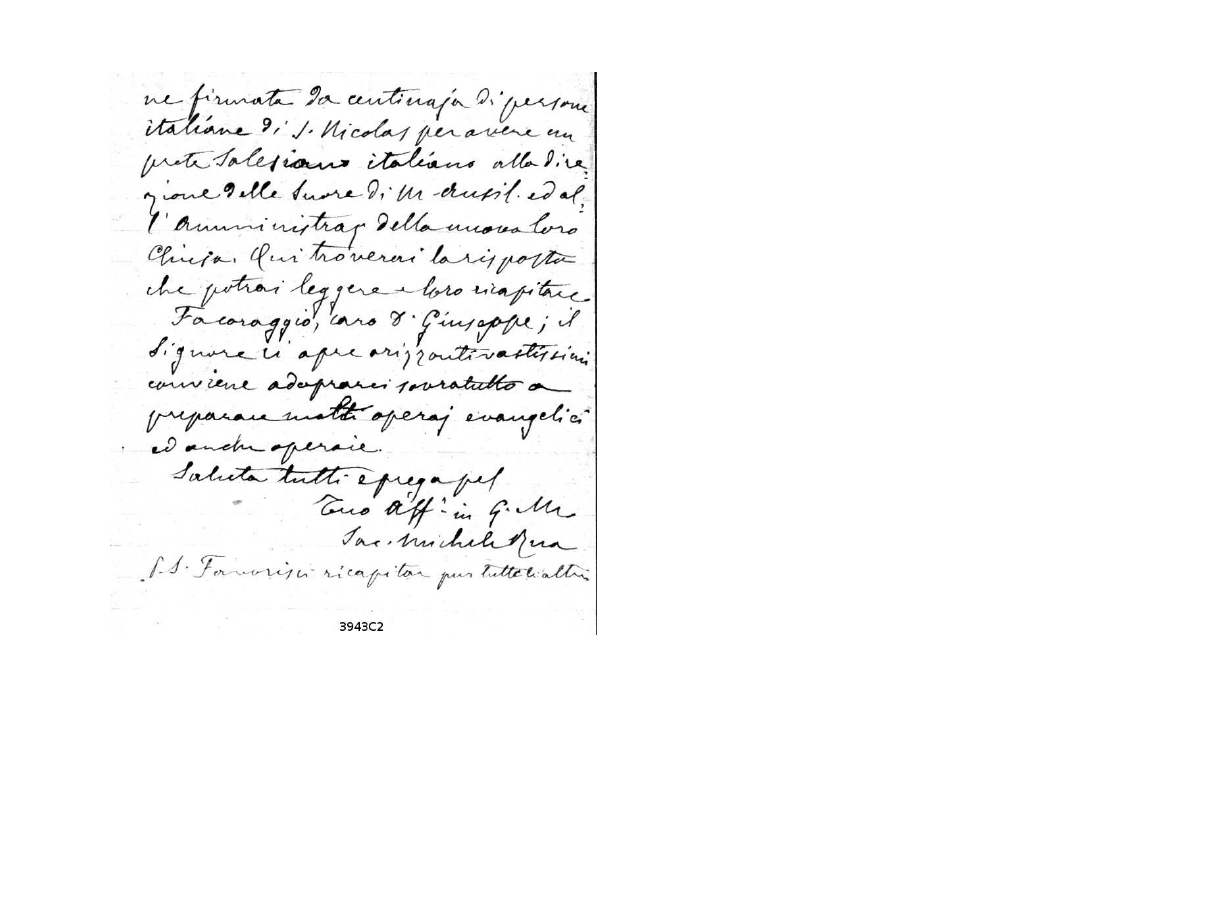 ne firmata da centinaja di persone
italiane di S. Nicolas per avere un
prete Salesiano italiano alla dire=
zione delle Suore di M. Ausil. ed al=
l'Amministraz della nuova loro
Chiesa. Qui troverai la risposta
che potrai leggere e loro ricapitare.
Fa coraggio, caro D. Giuseppe; il
Signore ci apre orizzonti vastissimi
conviene adoprarci sovratutto a
preparare molti operaj evangelici
ed anche operaie.
Saluta tutti e prega pel
Tuo Aff.° in G. M.
Sac. Michele Rua
P.S. Favorisci ricapitar pur tutte le altre
3943C2